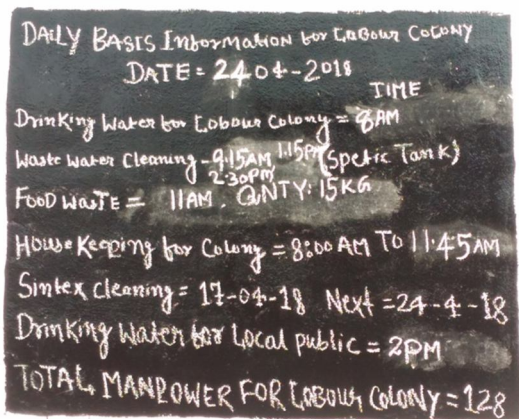 DAILY BASIS INFORMATION for LABOUR COLONY
DATE = 24 04-2018
TIME
Drinking Water for Labour Colony = 8AM
Waste Water Cleaning - 9.15AM 1.15PM (Spetic Tank)
2:30PM
FOOD WASTE = 11AM. QNTY: 15KG
House Keeping for Colony = 8:00 AM TO 11.45AM
Sintex Cleaning = 17-04-18 Next = 24-4-18
Drinking Water for Local public = 2PM
TOTAL MANPOWER FOR LABOUR COLONY = 128